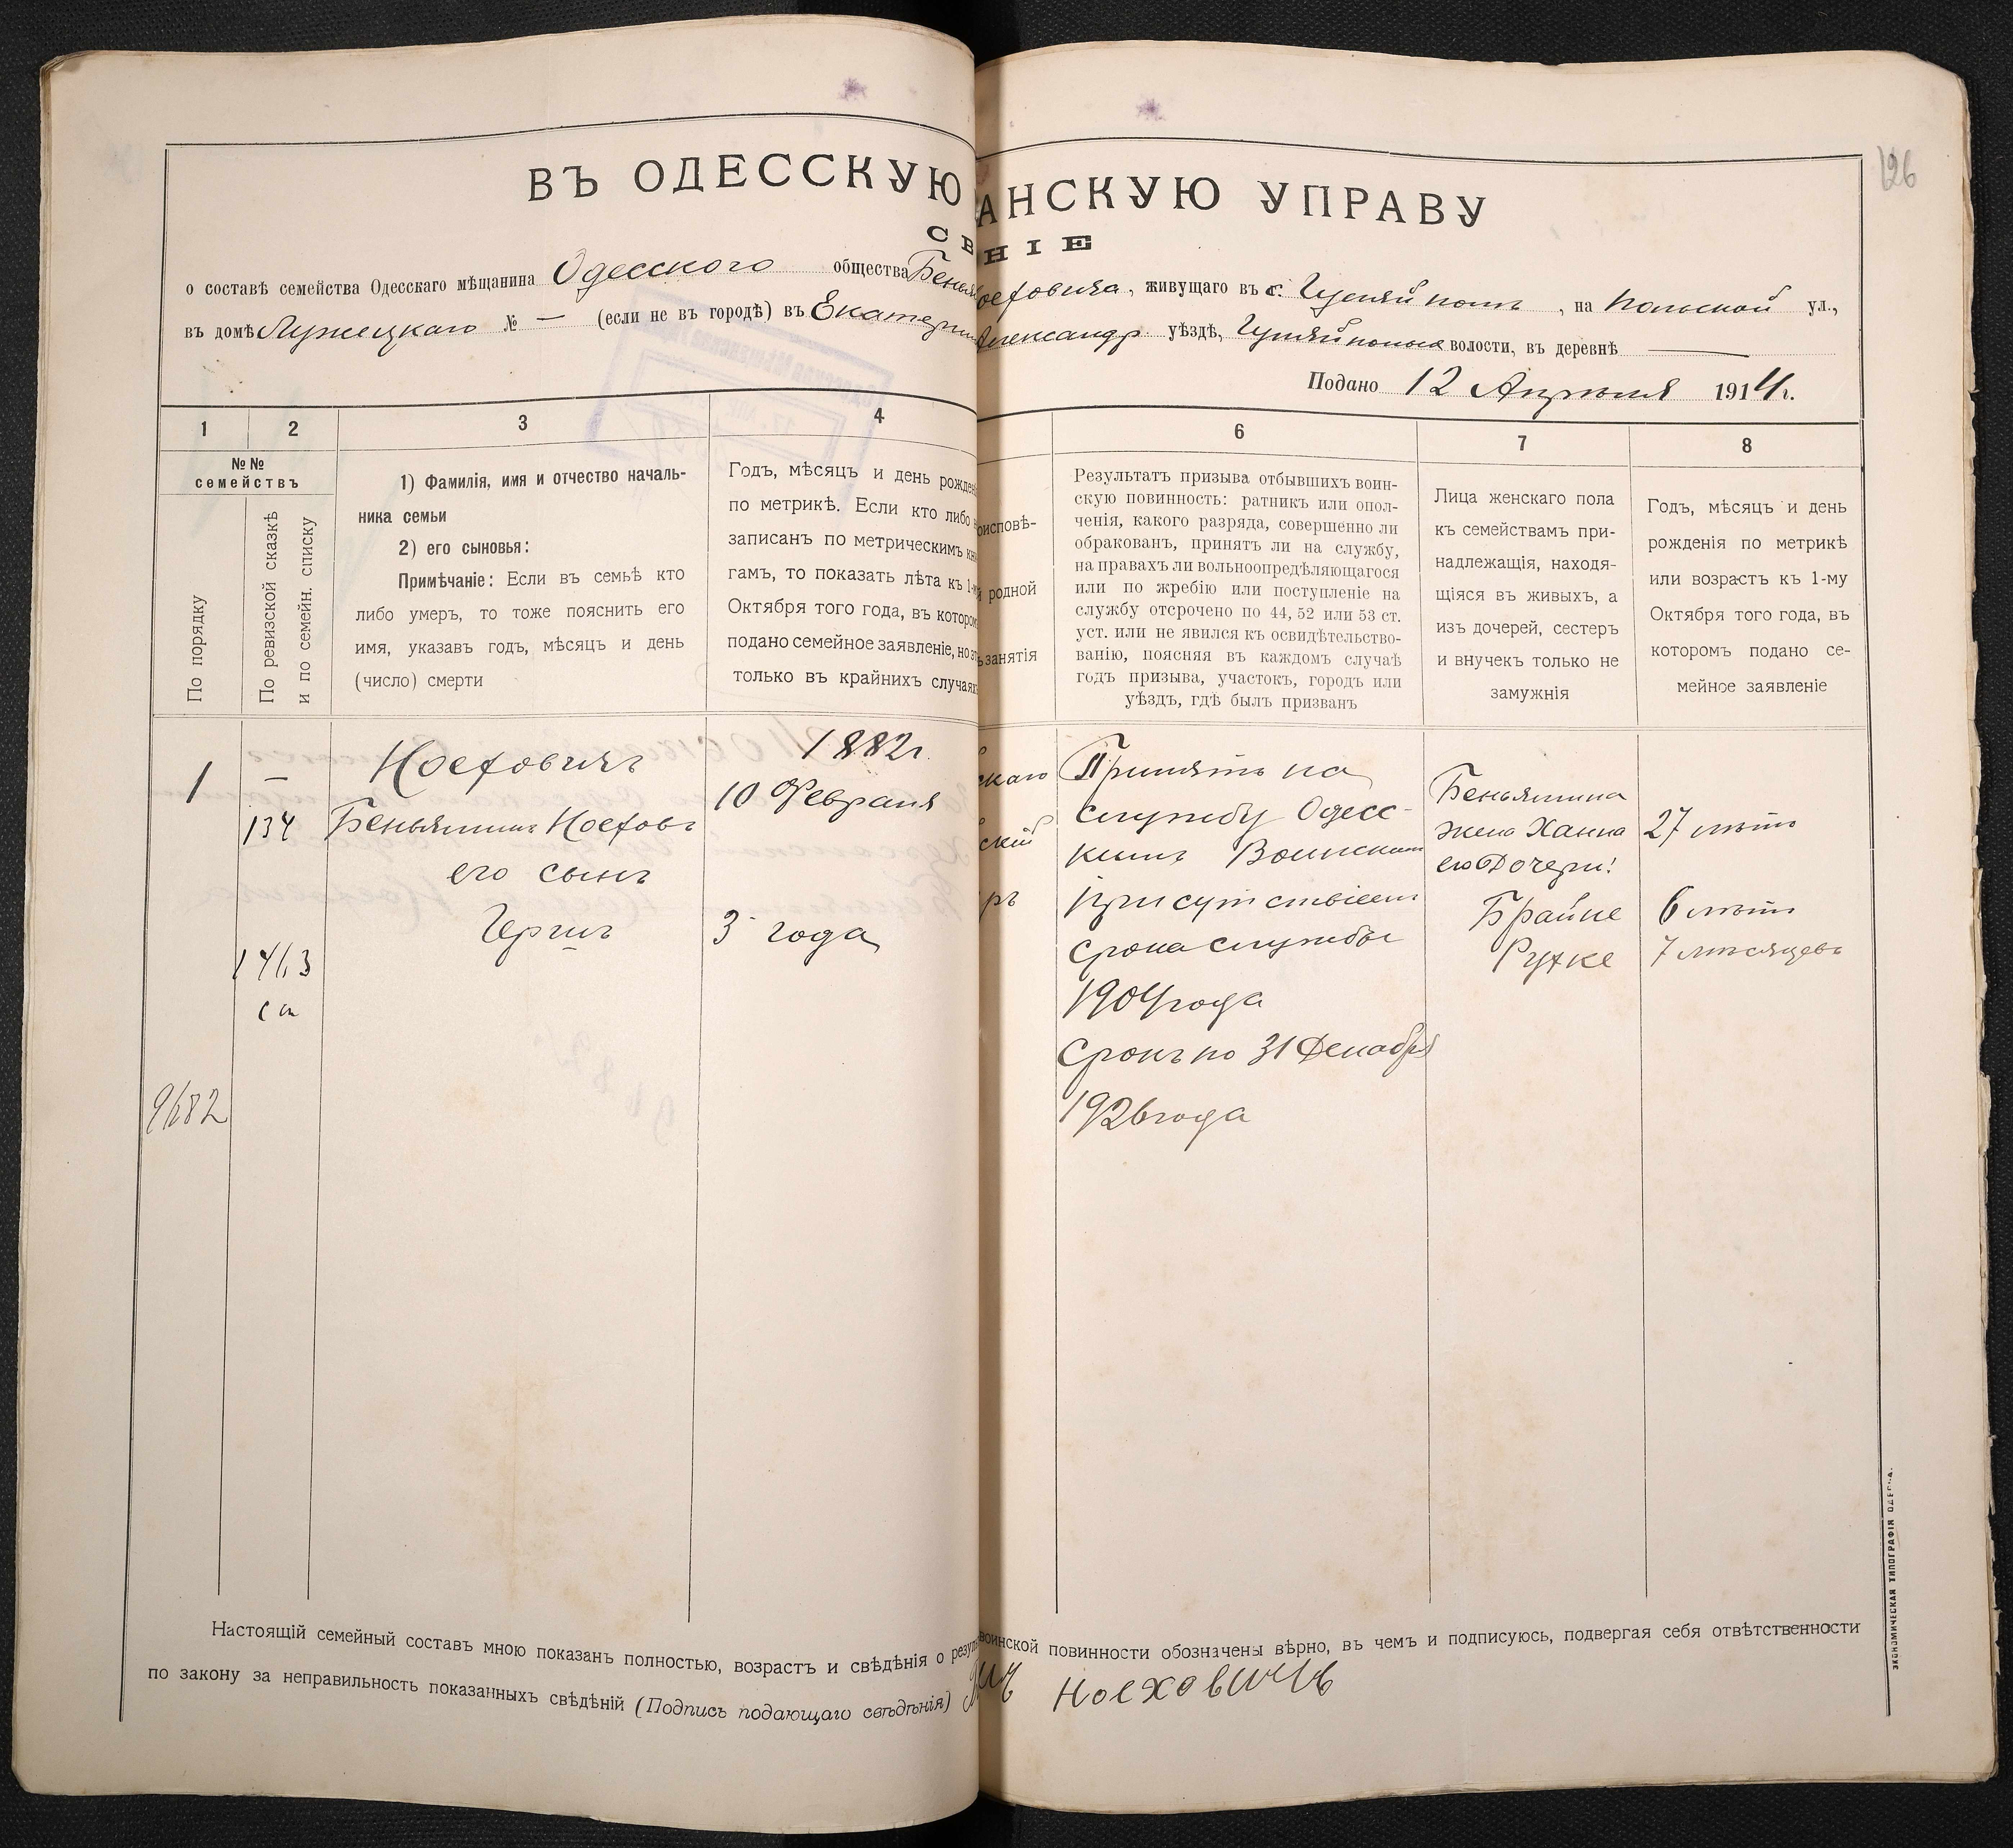 126
ВЪ ОДЕССКУЮ АНСКУЮ УПРАВУ
СВ НІЕ
о составѣ семейства Одесскаго мѣщанина Одесского общества Бенья оеховича, живущаго въ с. Гуляй поль, на Польской ул.,
въ домѣ Лужецкаго № — (если не въ городѣ) въ Екатерин Александр уѣздѣ, Гуляйполье волости, въ деревнѣ —
Подано 12 Апреля 1914 г.
1
2
3
4
6
7
8
№№
семействъ
По порядку
По ревизской сказкѣ
и по семейн. списку
1) Фамилія, имя и отчество началь-
ника семьи
2) его сыновья:
Примѣчаніе: Если въ семьѣ кто
либо умеръ, то тоже пояснить его
имя, указавъ годъ, мѣсяцъ и день
(число) смерти
Годъ, мѣсяцъ и день рожден
по метрикѣ. Если кто либо н
записанъ по метрическимъ кни
гамъ, то показать лѣта къ 1-м
Октября того года, въ которо
подано семейное заявленіе, но э
только въ крайнихъ случаях
оисповѣ-
й родной
ь занятія
Результатъ призыва отбывшихъ воин-
скую повинность: ратникъ или опол-
ченія, какого разряда, совершенно ли
обракованъ, принятъ ли на службу,
на правахъ ли вольноопредѣляющагося
или по жребію или поступленіе на
службу отсрочено по 44, 52 или 53 ст.
уст. или не явился къ освидѣтельство-
ванію, поясняя въ каждомъ случаѣ
годъ призыва, участокъ, городъ или
уѣздъ, гдѣ былъ призванъ
Лица женскаго пола
къ семействамъ при-
надлежащія, находя-
щіяся въ живыхъ, а
изъ дочерей, сестеръ
и внучекъ только не
замужнія
Годъ, мѣсяцъ и день
рожденія по метрикѣ
или возрастъ къ 1-му
Октября того года, въ
которомъ подано се-
мейное заявленіе
1
—
134
1463
9682
Ноеховичъ
Беньяминъ Ноеховъ
его сынъ
Герш
1882 г.
10 Февраля
3 года
скаго
ский
ръ
Принятъ на
службу Одесс-
кимъ Воинским
присутствіем
Срока службы
1904 года
Срокъ по 31 Декабря
1926 года
Беньямина
жена Ханна
его Дочери:
Брайне
Рухке
27 лѣтъ
6 лѣтъ
7 мѣсяцевъ
Настоящій семейный составъ мною показанъ полностью, возрастъ и свѣдѣнія о резуль воинской повинности обозначены вѣрно, въ чемъ и подписуюсь, подвергая себя отвѣтственности
по закону за неправильность показанныхъ свѣдѣній (Подпись подающаго свѣдѣнія) Ноеховичъ
ЭКОНОМИЧЕСКАЯ ТИПОГРАФІЯ ОДЕССА.